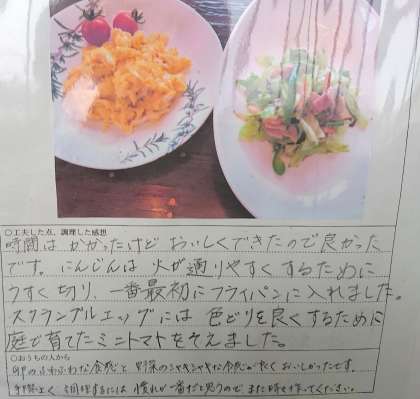 ○工夫した点、調理した感想
時間はかかったけどおいしくできたので良かった
です。にんじんは火が通りやすくするために
うすく切り、一番最初にフライパンに入れました。
スクランブルエッグには色どりを良くするために
庭で育てたミニトマトをそえました。
○おうちの人から
卵のふわふわな食感と野菜のシャキシャキな食感が良くおいしかったです。
手際よく調理するには慣れが一番だと思うのでまた時々作ってください。